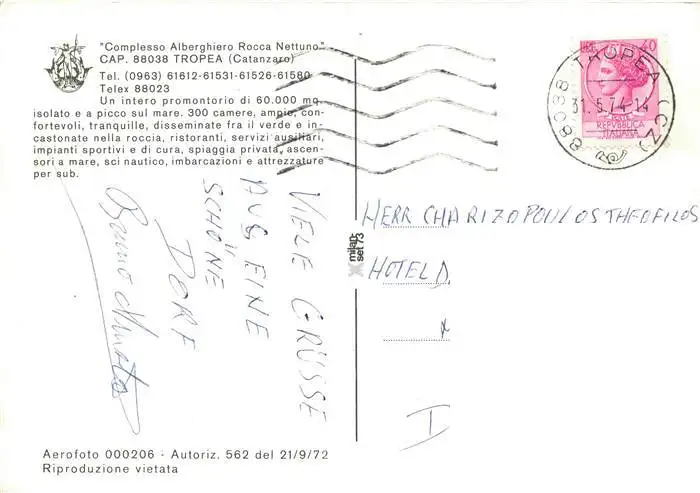 "Complesso Alberghiero Rocca Nettuno"
CAP. 88038 TROPEA (Catanzaro)
Tel. (0963) 61612-61531-61526-61580
Telex 88023
Un intero promontorio di 60.000 mq.
isolato e a picco sul mare. 300 camere, ampie, con-
fortevoli, tranquille, disseminate fra il verde e in-
castonate nella roccia, ristoranti, servizi ausiliari,
impianti sportivi e di cura, spiaggia privata, ascen-
sori a mare, sci nautico, imbarcazioni e attrezzature
per sub.
VIELE GRÜSSE
AUS EINE
SCHÖNE
DORF
Bruno
40
REPVBBLICA
ITALIANA
88038 TROPEA (CZ)
31.5.74-14
HERR CHARIZOPOULOS THEOFILOS
HOTEL D.
I
milan-
set 73
Aerofoto 000206 - Autoriz. 562 del 21/9/72
Riproduzione vietata